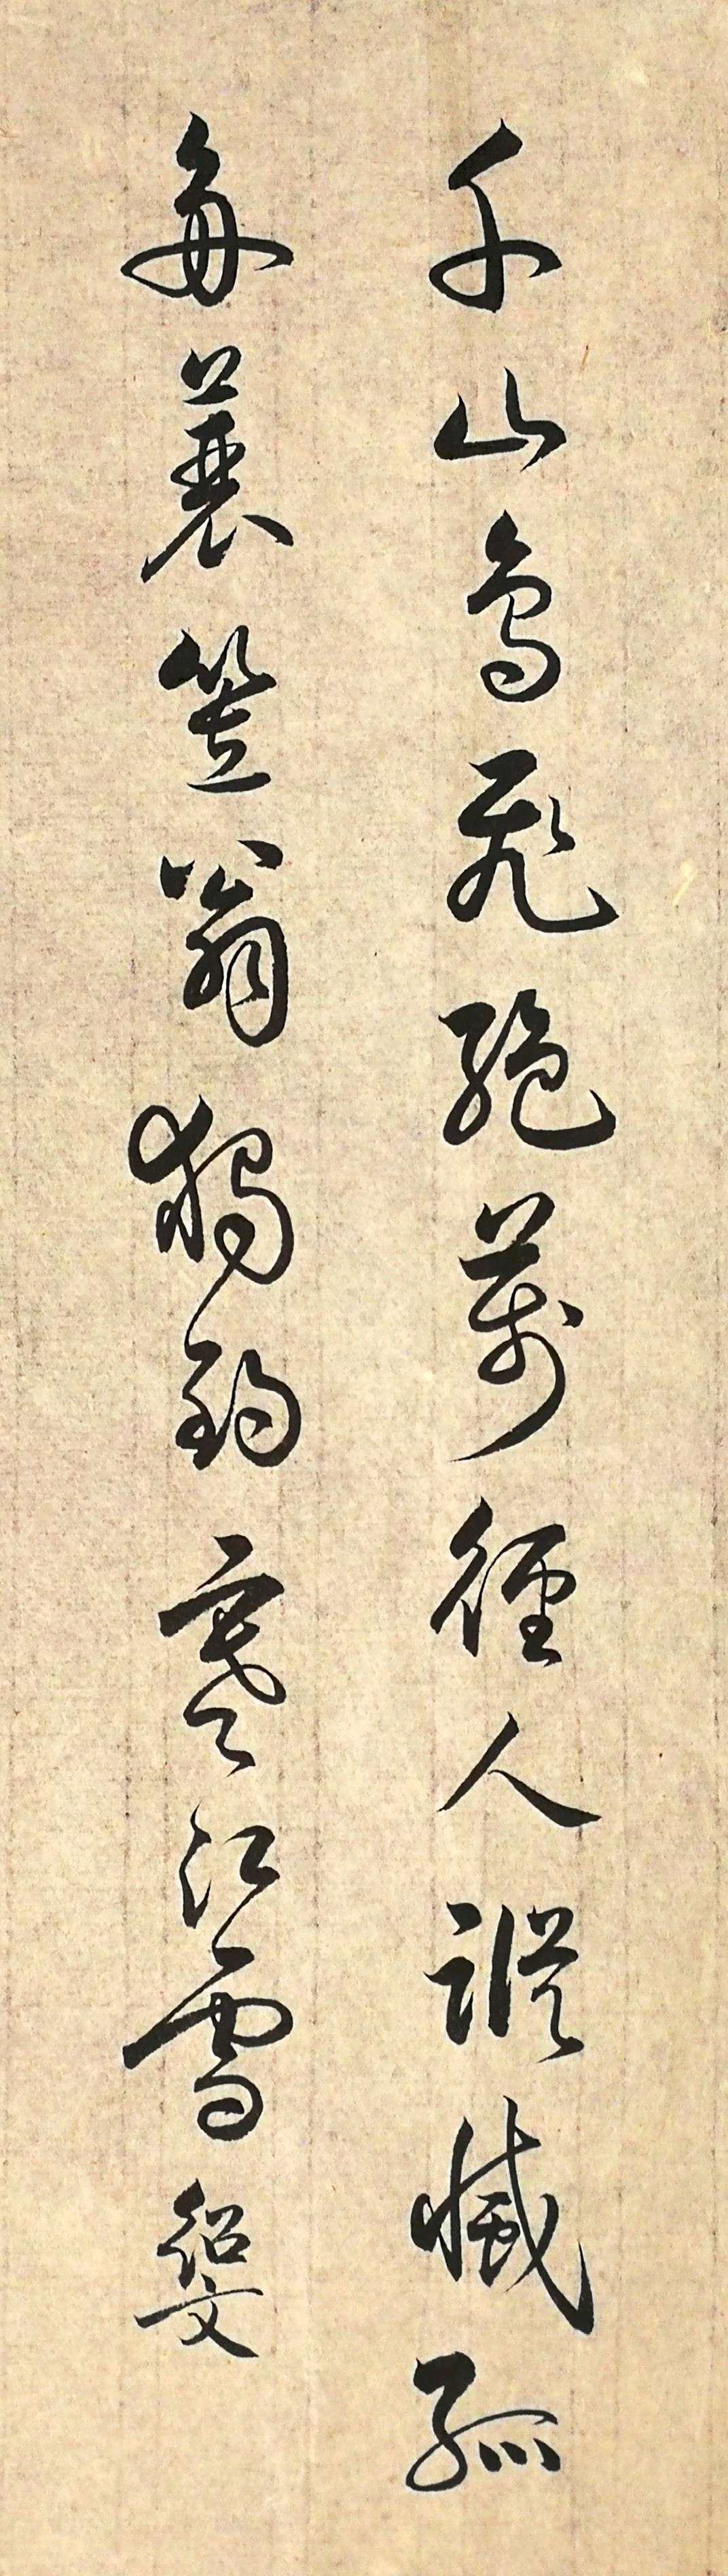 千山鳥飛絕萬徑人蹤滅孤
舟蓑笠翁獨釣寒江雪 紹文